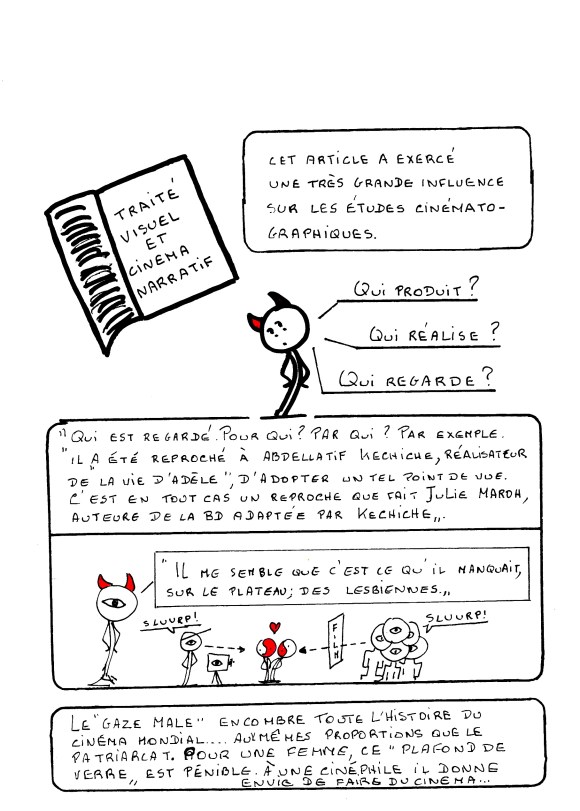 CET ARTICLE A EXERCÉ
UNE TRÈS GRANDE INFLUENCE
SUR LES ÉTUDES CINÉMATO-
GRAPHIQUES.
TRAITÉ
VISUEL
ET
CINEMA
NARRATIF
QUI PRODUIT ?
QUI RÉALISE ?
QUI REGARDE ?
"QUI EST REGARDÉ. POUR QUI ? PAR QUI ? PAR EXEMPLE.
"IL A ÉTÉ REPROCHÉ À ABDELLATIF KECHICHE, RÉALISATEUR
DE "LA VIE D'ADÈLE", D'ADOPTER UN TEL POINT DE VUE.
C'EST EN TOUT CAS UN REPROCHE QUE FAIT JULIE MAROH,
AUTEURE DE LA BD ADAPTÉE PAR KECHICHE".
"IL ME SEMBLE QUE C'EST CE QU'IL MANQUAIT,
SUR LE PLATEAU; DES LESBIENNES."
SLUURP!
FILM
SLUURP!
LE "GAZE MALE" ENCOMBRE TOUTE L'HISTOIRE DU
CINÉMA MONDIAL.... AUX MÊMES PROPORTIONS QUE LE
PATRIARCAT. POUR UNE FEMME, CE "PLAFOND DE
VERRE" EST PÉNIBLE. À UNE CINÉPHILE IL DONNE
ENVIE DE FAIRE DU CINÉMA...